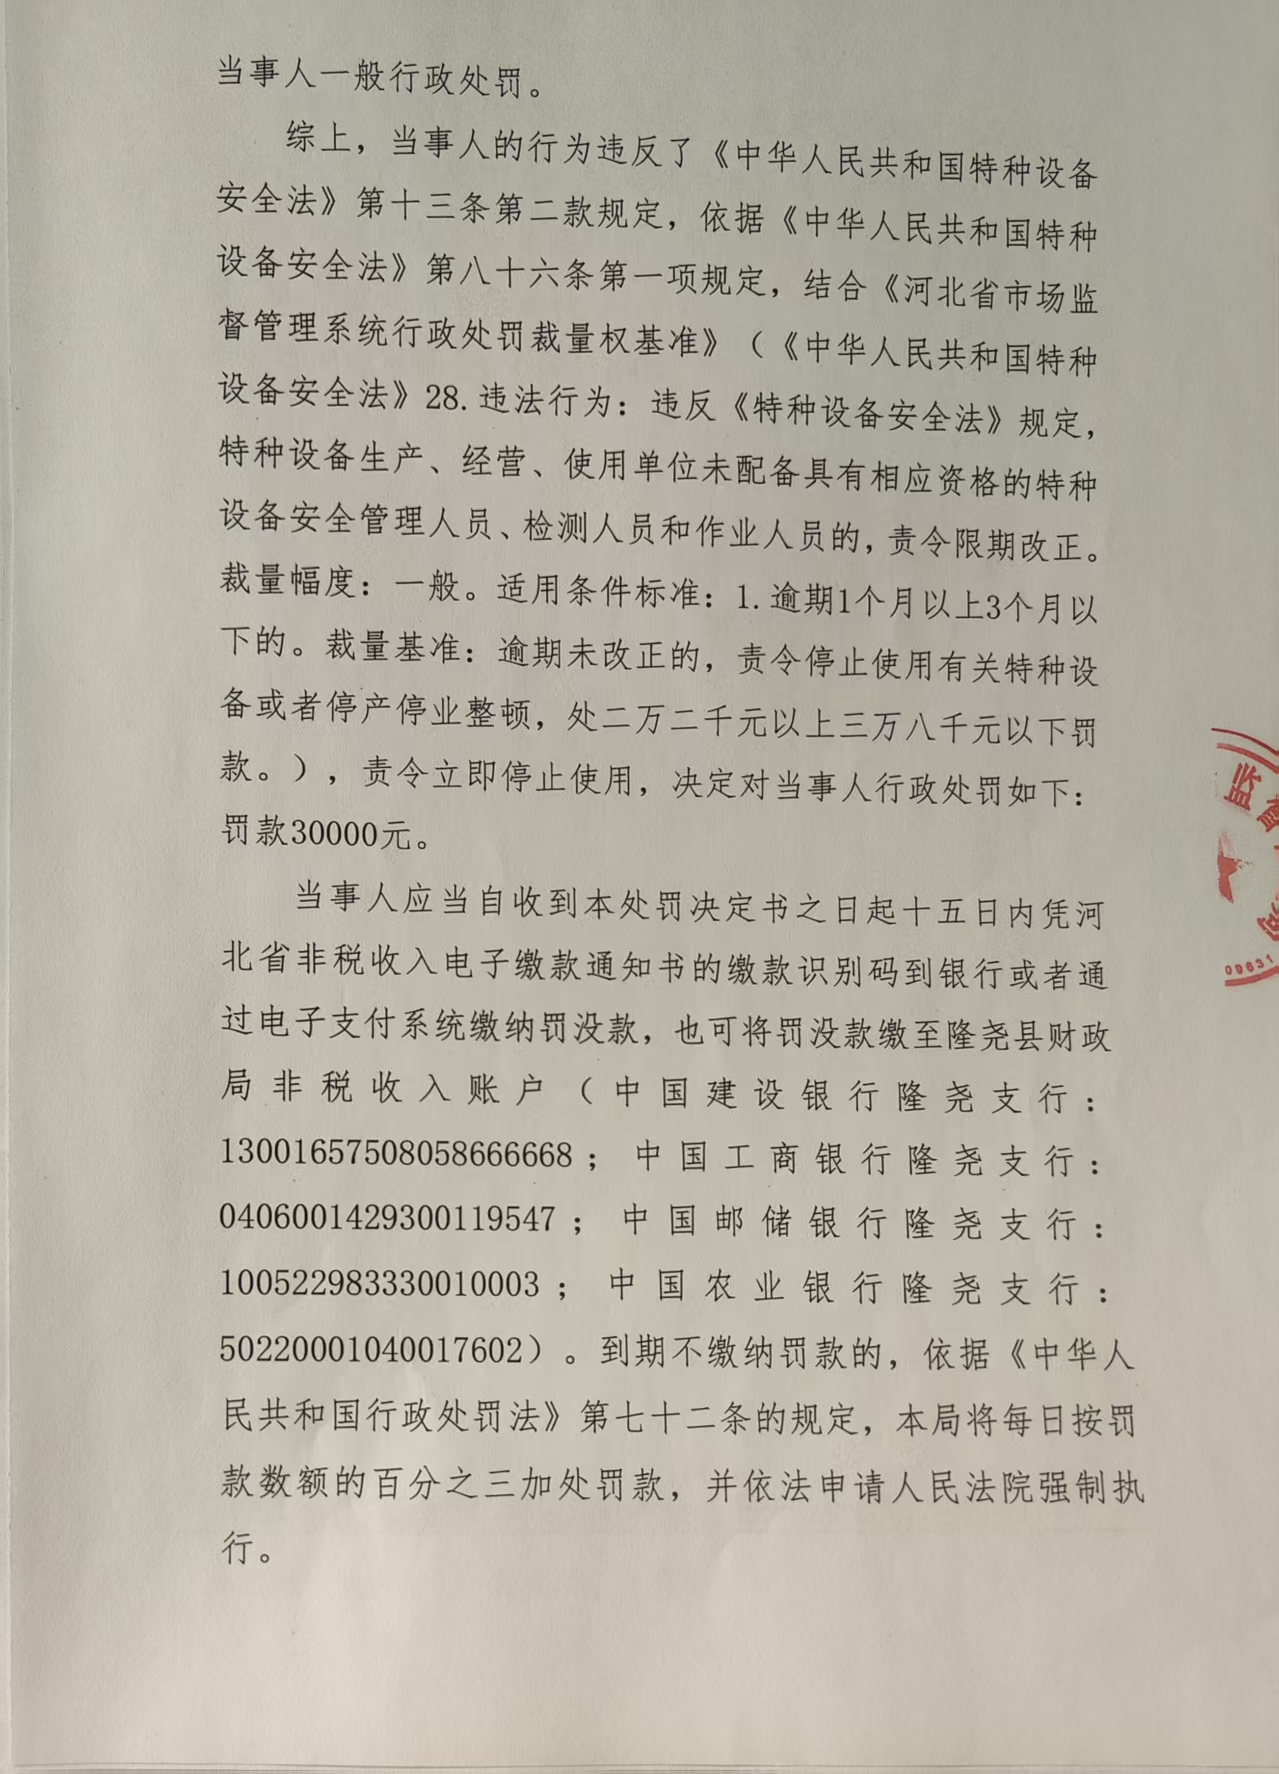 当事人一般行政处罚。
综上，当事人的行为违反了《中华人民共和国特种设备
安全法》第十三条第二款规定，依据《中华人民共和国特种
设备安全法》第八十六条第一项规定，结合《河北省市场监
督管理系统行政处罚裁量权基准》（《中华人民共和国特种
设备安全法》28.违法行为：违反《特种设备安全法》规定，
特种设备生产、经营、使用单位未配备具有相应资格的特种
设备安全管理人员、检测人员和作业人员的，责令限期改正。
裁量幅度：一般。适用条件标准：1.逾期1个月以上3个月以
下的。裁量基准：逾期未改正的，责令停止使用有关特种设
备或者停产停业整顿，处二万二千元以上三万八千元以下罚
款。），责令立即停止使用，决定对当事人行政处罚如下：
罚款30000元。
当事人应当自收到本处罚决定书之日起十五日内凭河
北省非税收入电子缴款通知书的缴款识别码到银行或者通
过电子支付系统缴纳罚没款，也可将罚没款缴至隆尧县财政
局非税收入账户（中国建设银行隆尧支行：
13001657508058666668；中国工商银行隆尧支行：
0406001429300119547；中国邮储银行隆尧支行：
100522983330010003；中国农业银行隆尧支行：
50220001040017602）。到期不缴纳罚款的，依据《中华人
民共和国行政处罚法》第七十二条的规定，本局将每日按罚
款数额的百分之三加处罚款，并依法申请人民法院强制执
行。
监督
局
09631